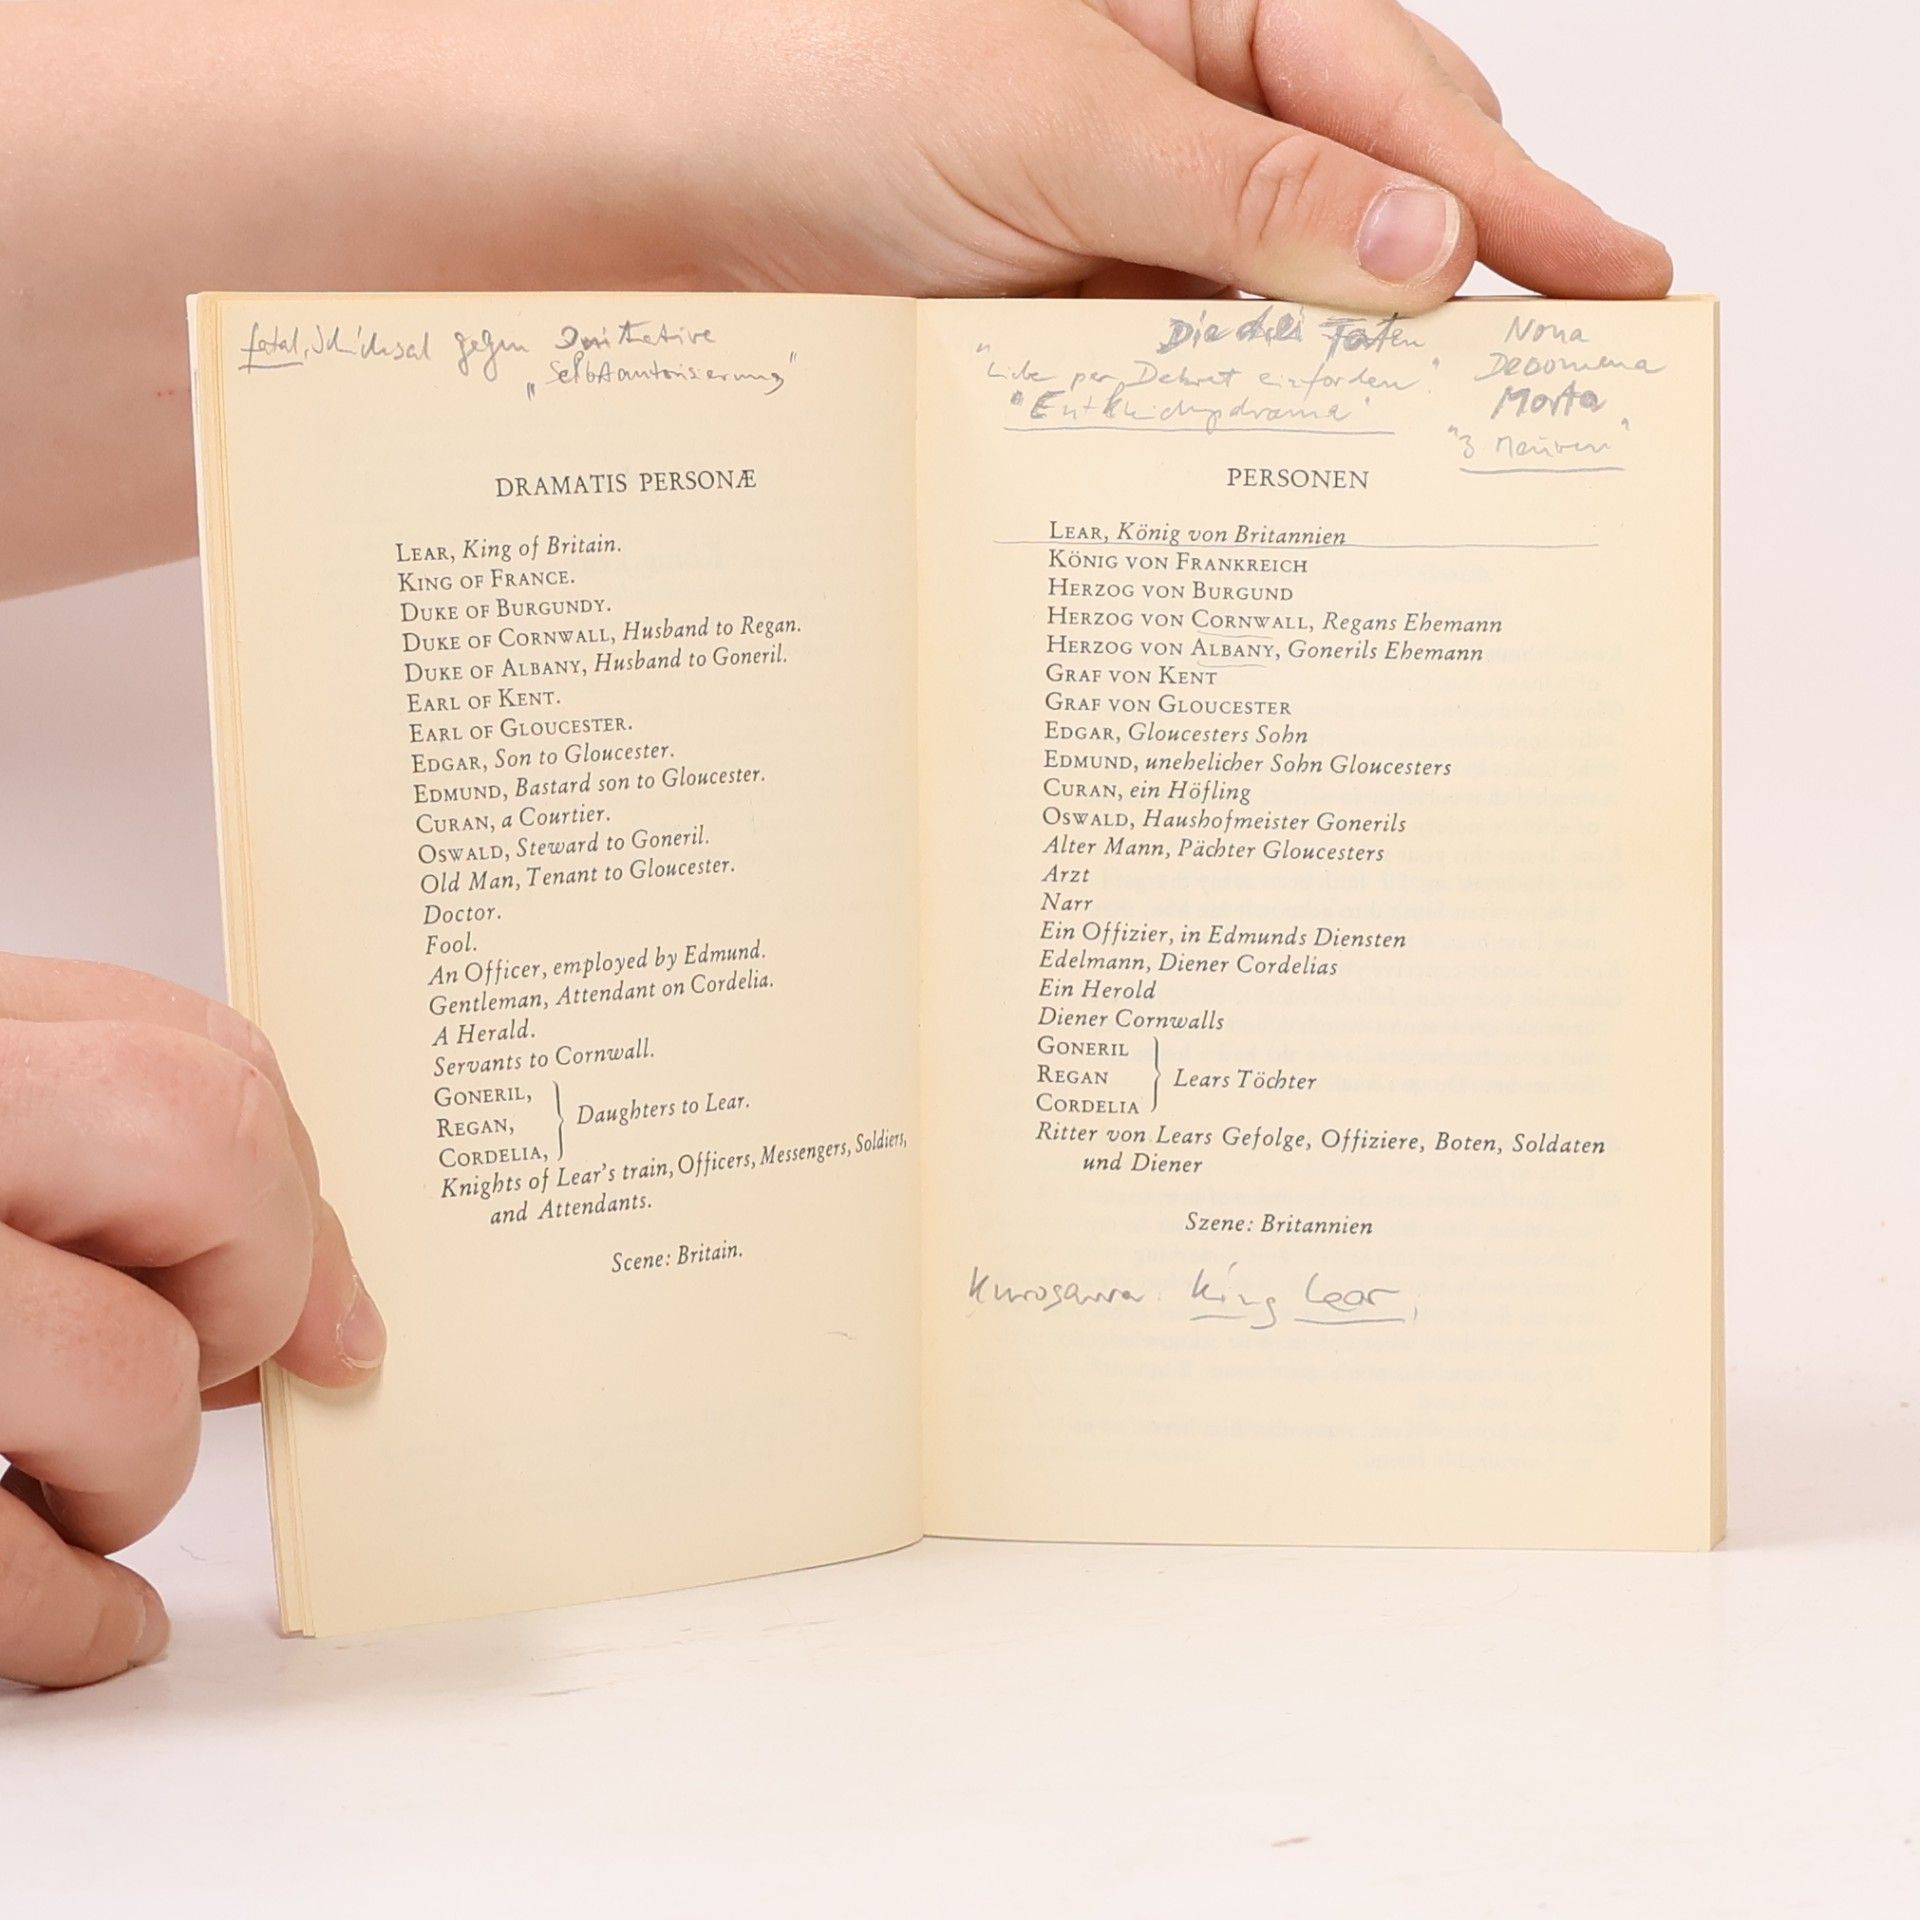 fatal, Schicksal gegen Initiative
"Selbstautorisierung"
DRAMATIS PERSONÆ
LEAR, King of Britain.
KING OF FRANCE.
DUKE OF BURGUNDY.
DUKE OF CORNWALL, Husband to Regan.
DUKE OF ALBANY, Husband to Goneril.
EARL OF KENT.
EARL OF GLOUCESTER.
EDGAR, Son to Gloucester.
EDMUND, Bastard son to Gloucester.
CURAN, a Courtier.
OSWALD, Steward to Goneril.
Old Man, Tenant to Gloucester.
Doctor.
Fool.
An Officer, employed by Edmund.
Gentleman, Attendant on Cordelia.
A Herald.
Servants to Cornwall.
GONERIL,
REGAN,
CORDELIA,
Daughters to Lear.
Knights of Lear's train, Officers, Messengers, Soldiers,
and Attendants.
Scene: Britain.
Die drei
"Liebe per Dekret einfordern"
Nona
Morta
"3
PERSONEN
LEAR, König von Britannien
KÖNIG VON FRANKREICH
HERZOG VON BURGUND
HERZOG VON CORNWALL, Regans Ehemann
HERZOG VON ALBANY, Gonerils Ehemann
GRAF VON KENT
GRAF VON GLOUCESTER
EDGAR, Gloucesters Sohn
EDMUND, unehelicher Sohn Gloucesters
CURAN, ein Höfling
OSWALD, Haushofmeister Gonerils
Alter Mann, Pächter Gloucesters
Arzt
Narr
Ein Offizier, in Edmunds Diensten
Edelmann, Diener Cordelias
Ein Herold
Diener Cornwalls
GONERIL
REGAN
CORDELIA
Lears Töchter
Ritter von Lears Gefolge, Offiziere, Boten, Soldaten
und Diener
Szene: Britannien
Kurosawa: King Lear,